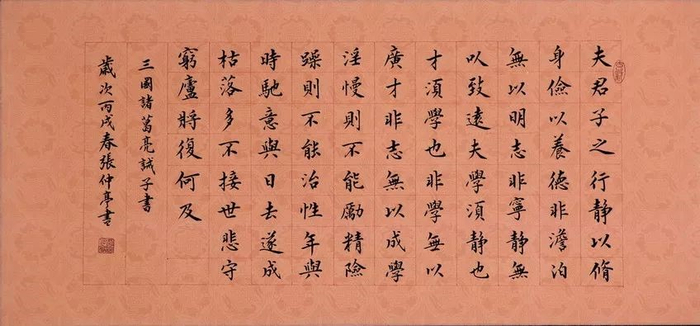 夫君子之行静以脩
身儉以養德非澹泊
無以明志非寧静無
以致遠夫學須静也
才須學也非學無以
廣才非志無以成學
淫慢則不能勵精險
躁則不能治性年與
時馳意與日去遂成
枯落多不接世悲守
窮廬將復何及
三國諸葛亮誡子書
歲次丙戌春張仲亭書